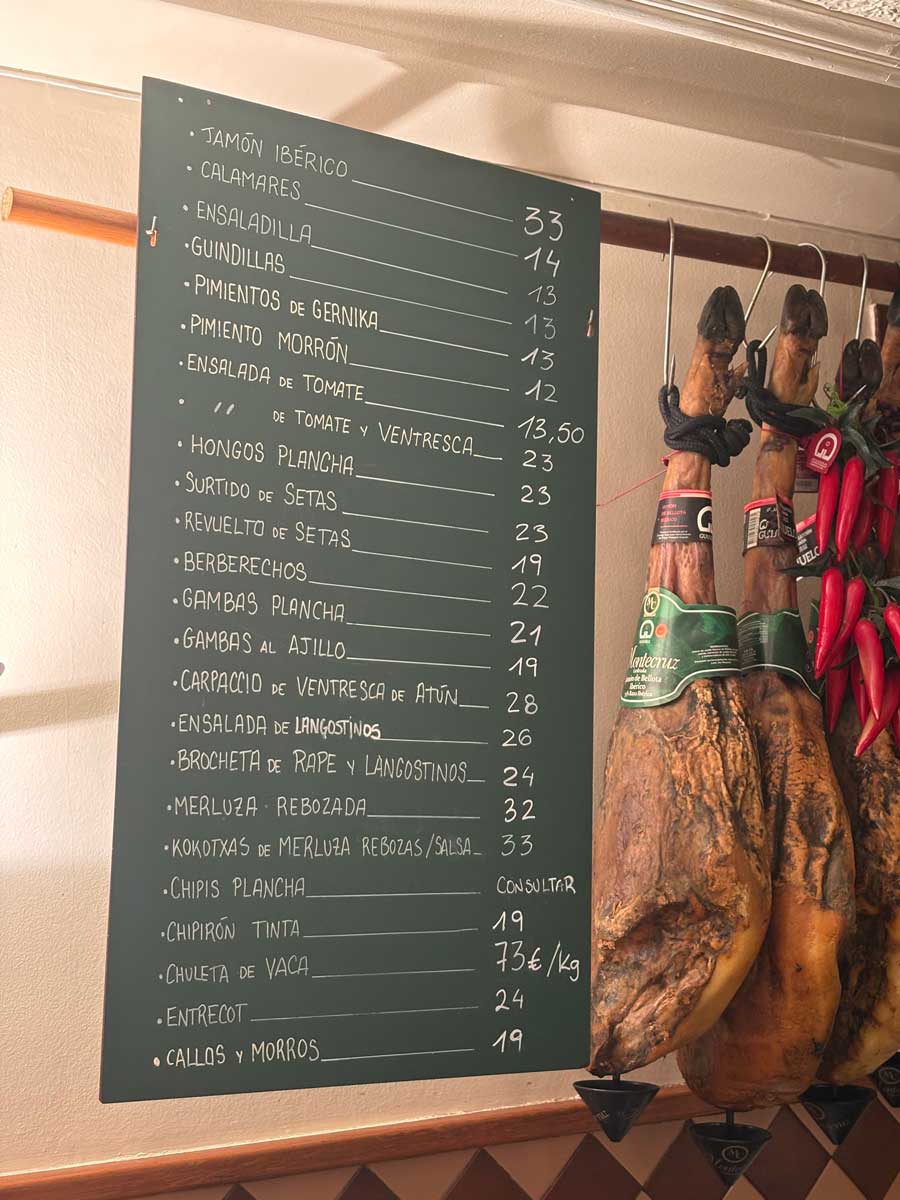 • JAMÓN IBÉRICO 33
• CALAMARES 14
• ENSALADILLA 13
• GUINDILLAS 13
• PIMIENTOS DE GERNIKA 13
• PIMIENTO MORRÓN 12
• ENSALADA DE TOMATE 13,50
• " DE TOMATE Y VENTRESCA 23
• HONGOS PLANCHA 23
• SURTIDO DE SETAS 23
• REVUELTO DE SETAS 19
• BERBERECHOS 22
• GAMBAS PLANCHA 21
• GAMBAS AL AJILLO 19
• CARPACCIO DE VENTRESCA DE ATÚN 28
• ENSALADA DE LANGOSTINOS 26
• BROCHETA DE RAPE Y LANGOSTINOS 24
• MERLUZA REBOZADA 32
• KOKOTXAS DE MERLUZA REBOZAS/SALSA 33
• CHIPIS PLANCHA CONSULTAR
• CHIPIRÓN TINTA 19
• CHULETA DE VACA 73€/Kg
• ENTRECOT 24
• CALLOS Y MORROS 19
Montecruz
de Bellota
Ibérico